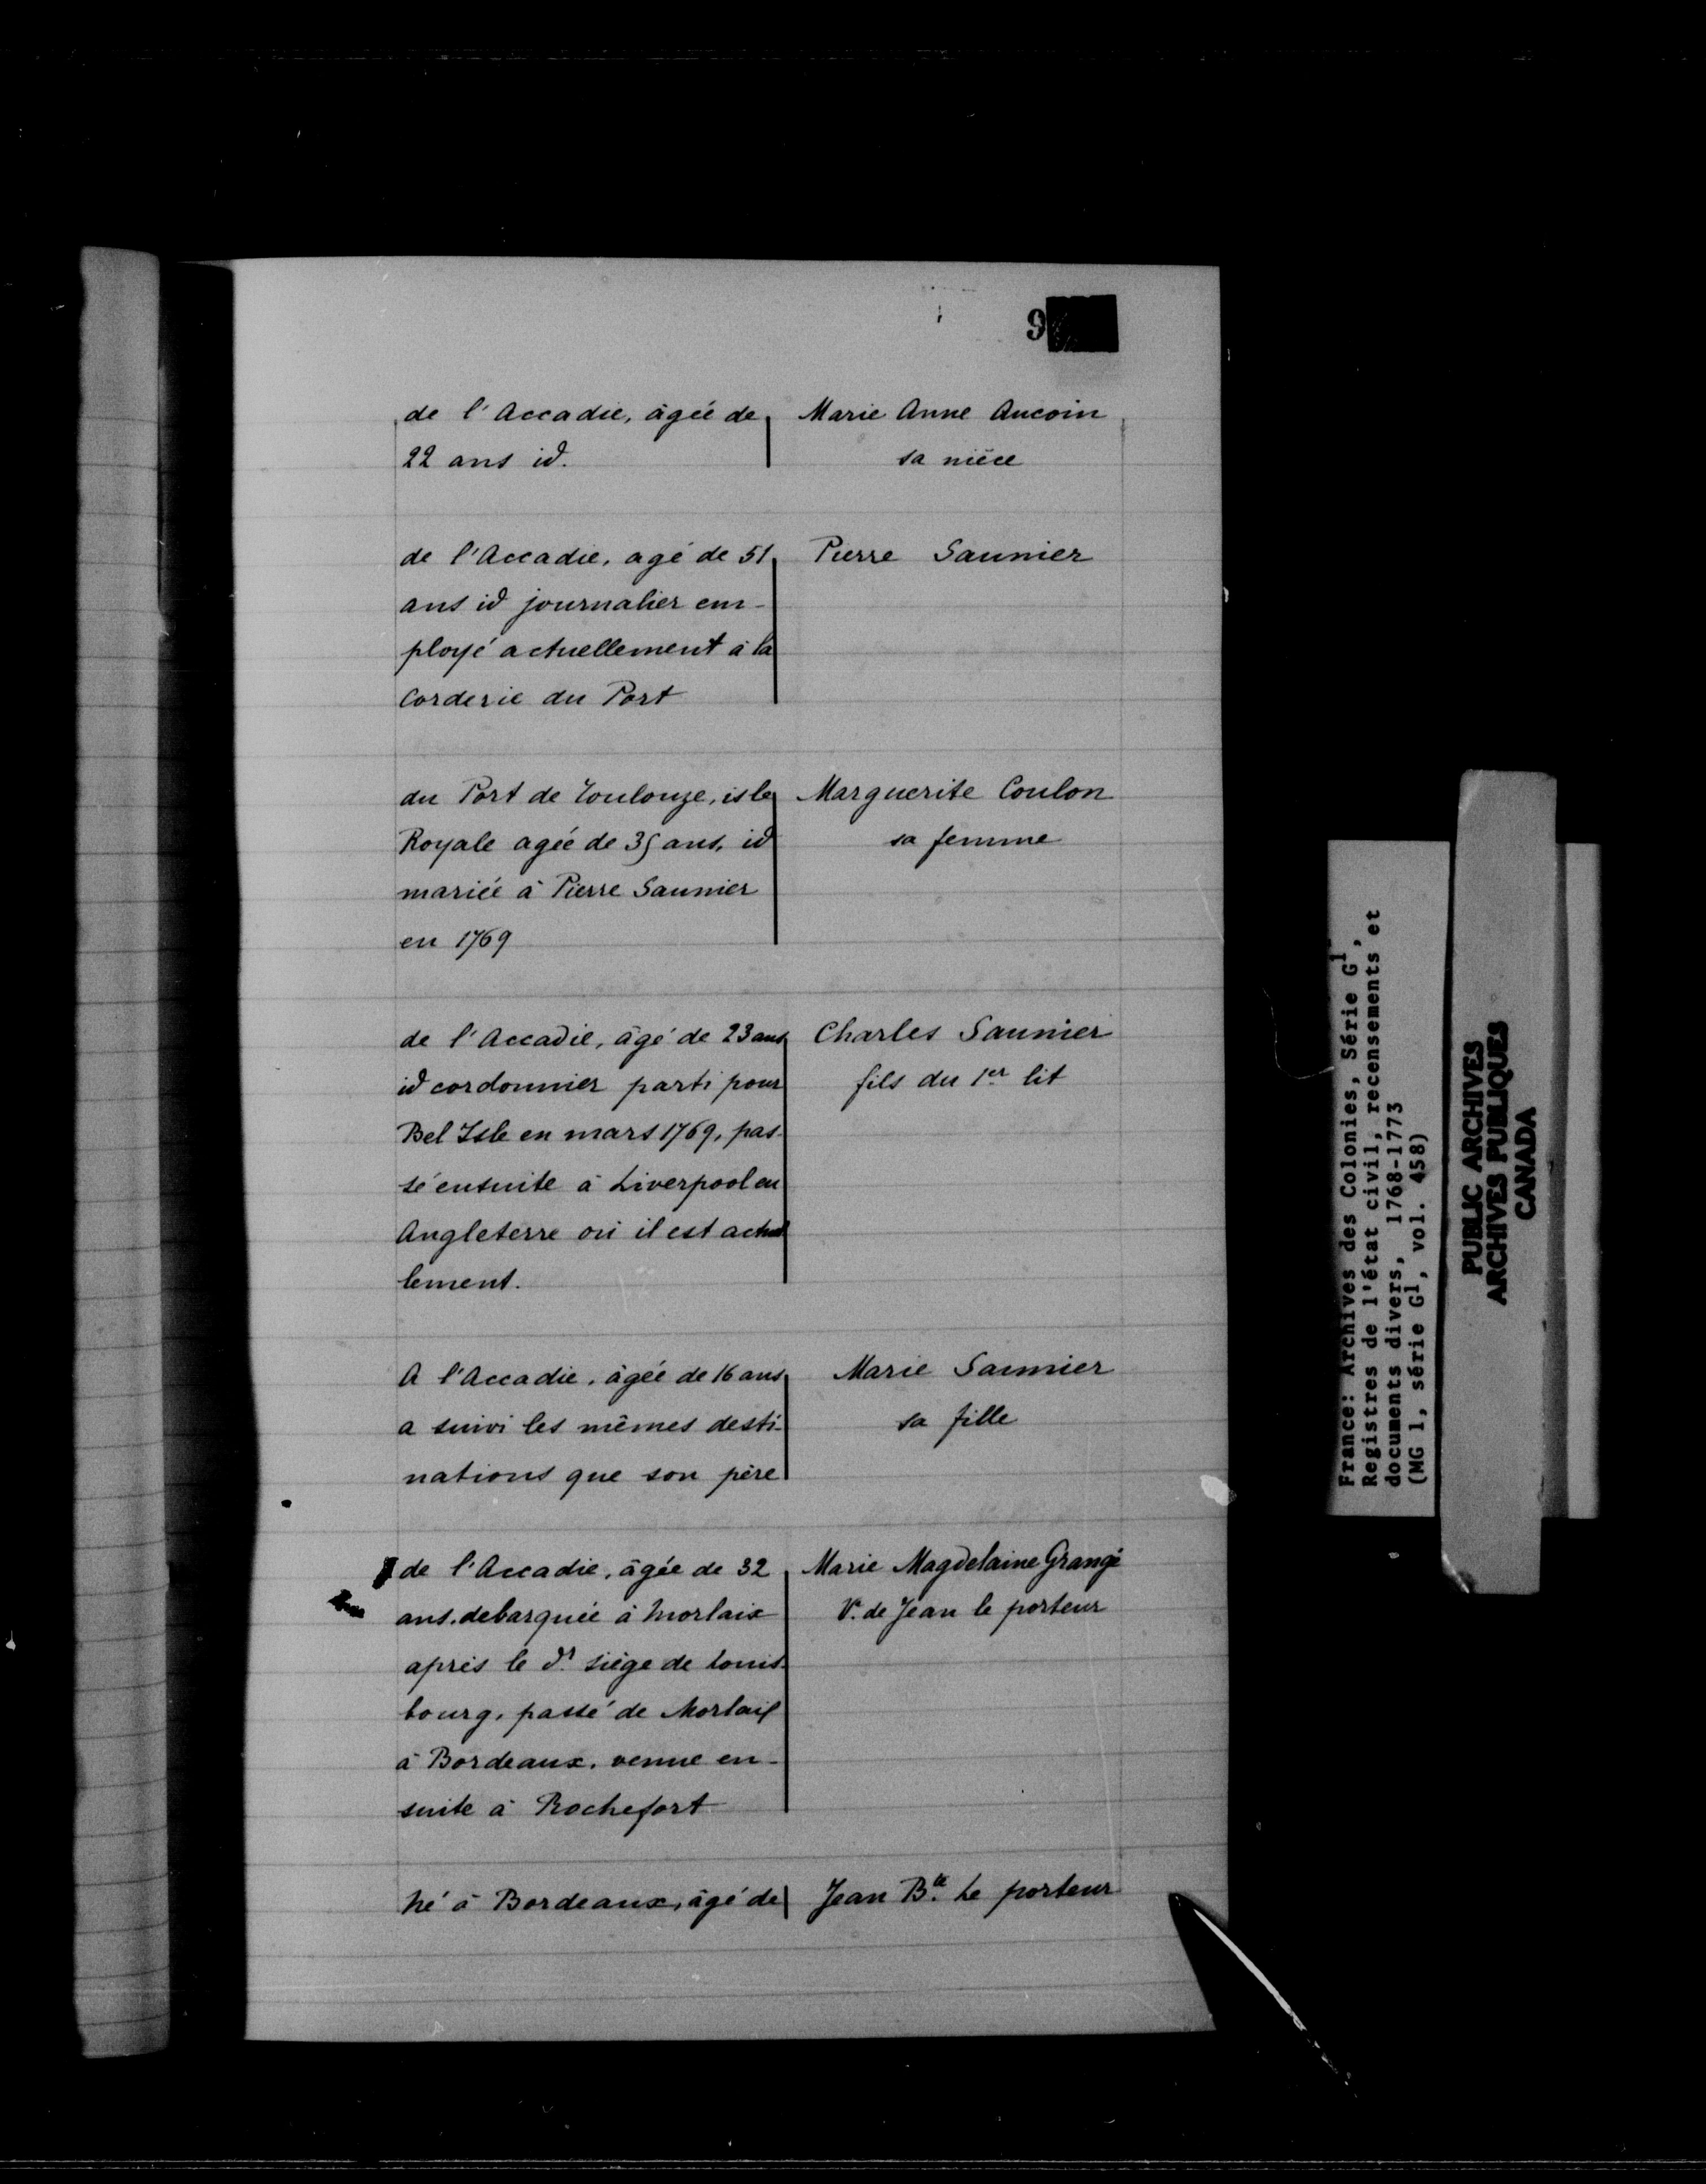 9
de l'Accadie, âgée de
22 ans id.
Marie Anne Aucoin
sa niéce
de l'Accadie, agé de 51
ans id journalier em-
ployé actuellement à la
Corderie du Port
Pierre Saunier
du Port de Toulouze, isle
Royale agée de 35 ans, id
mariée à Pierre Saunier
en 1769
Marguerite Coulon
sa femme
de l'Accadie, âgé de 23 ans
id cordonnier parti pour
Bel Isle en mars 1769, pas-
sé ensuite à Liverpool en
Angleterre où il est actuel
lement.
Charles Saunier
fils du 1er lit
A l'Accadie, âgée de 16 ans
a suivi les mêmes desti-
nations que son père
Marie Saunier
sa fille
de l'Accadie, âgée de 32
ans, debarquée à Morlaix
après le dr siège de Louis-
bourg, passé de Morlaix
à Bordeaux, venue en-
suite à Rochefort
Marie Magdelaine Grangé
Ve de Jean le porteur
Né à Bordeaux, âgé de
Jean Bte Le porteur
France: Archives des Colonies, Série G1,
Registres de l'état civil, recensements et
documents divers, 1768-1773
(MG 1, série G1, vol. 458)
PUBLIC ARCHIVES
ARCHIVES PUBLIQUES
CANADA